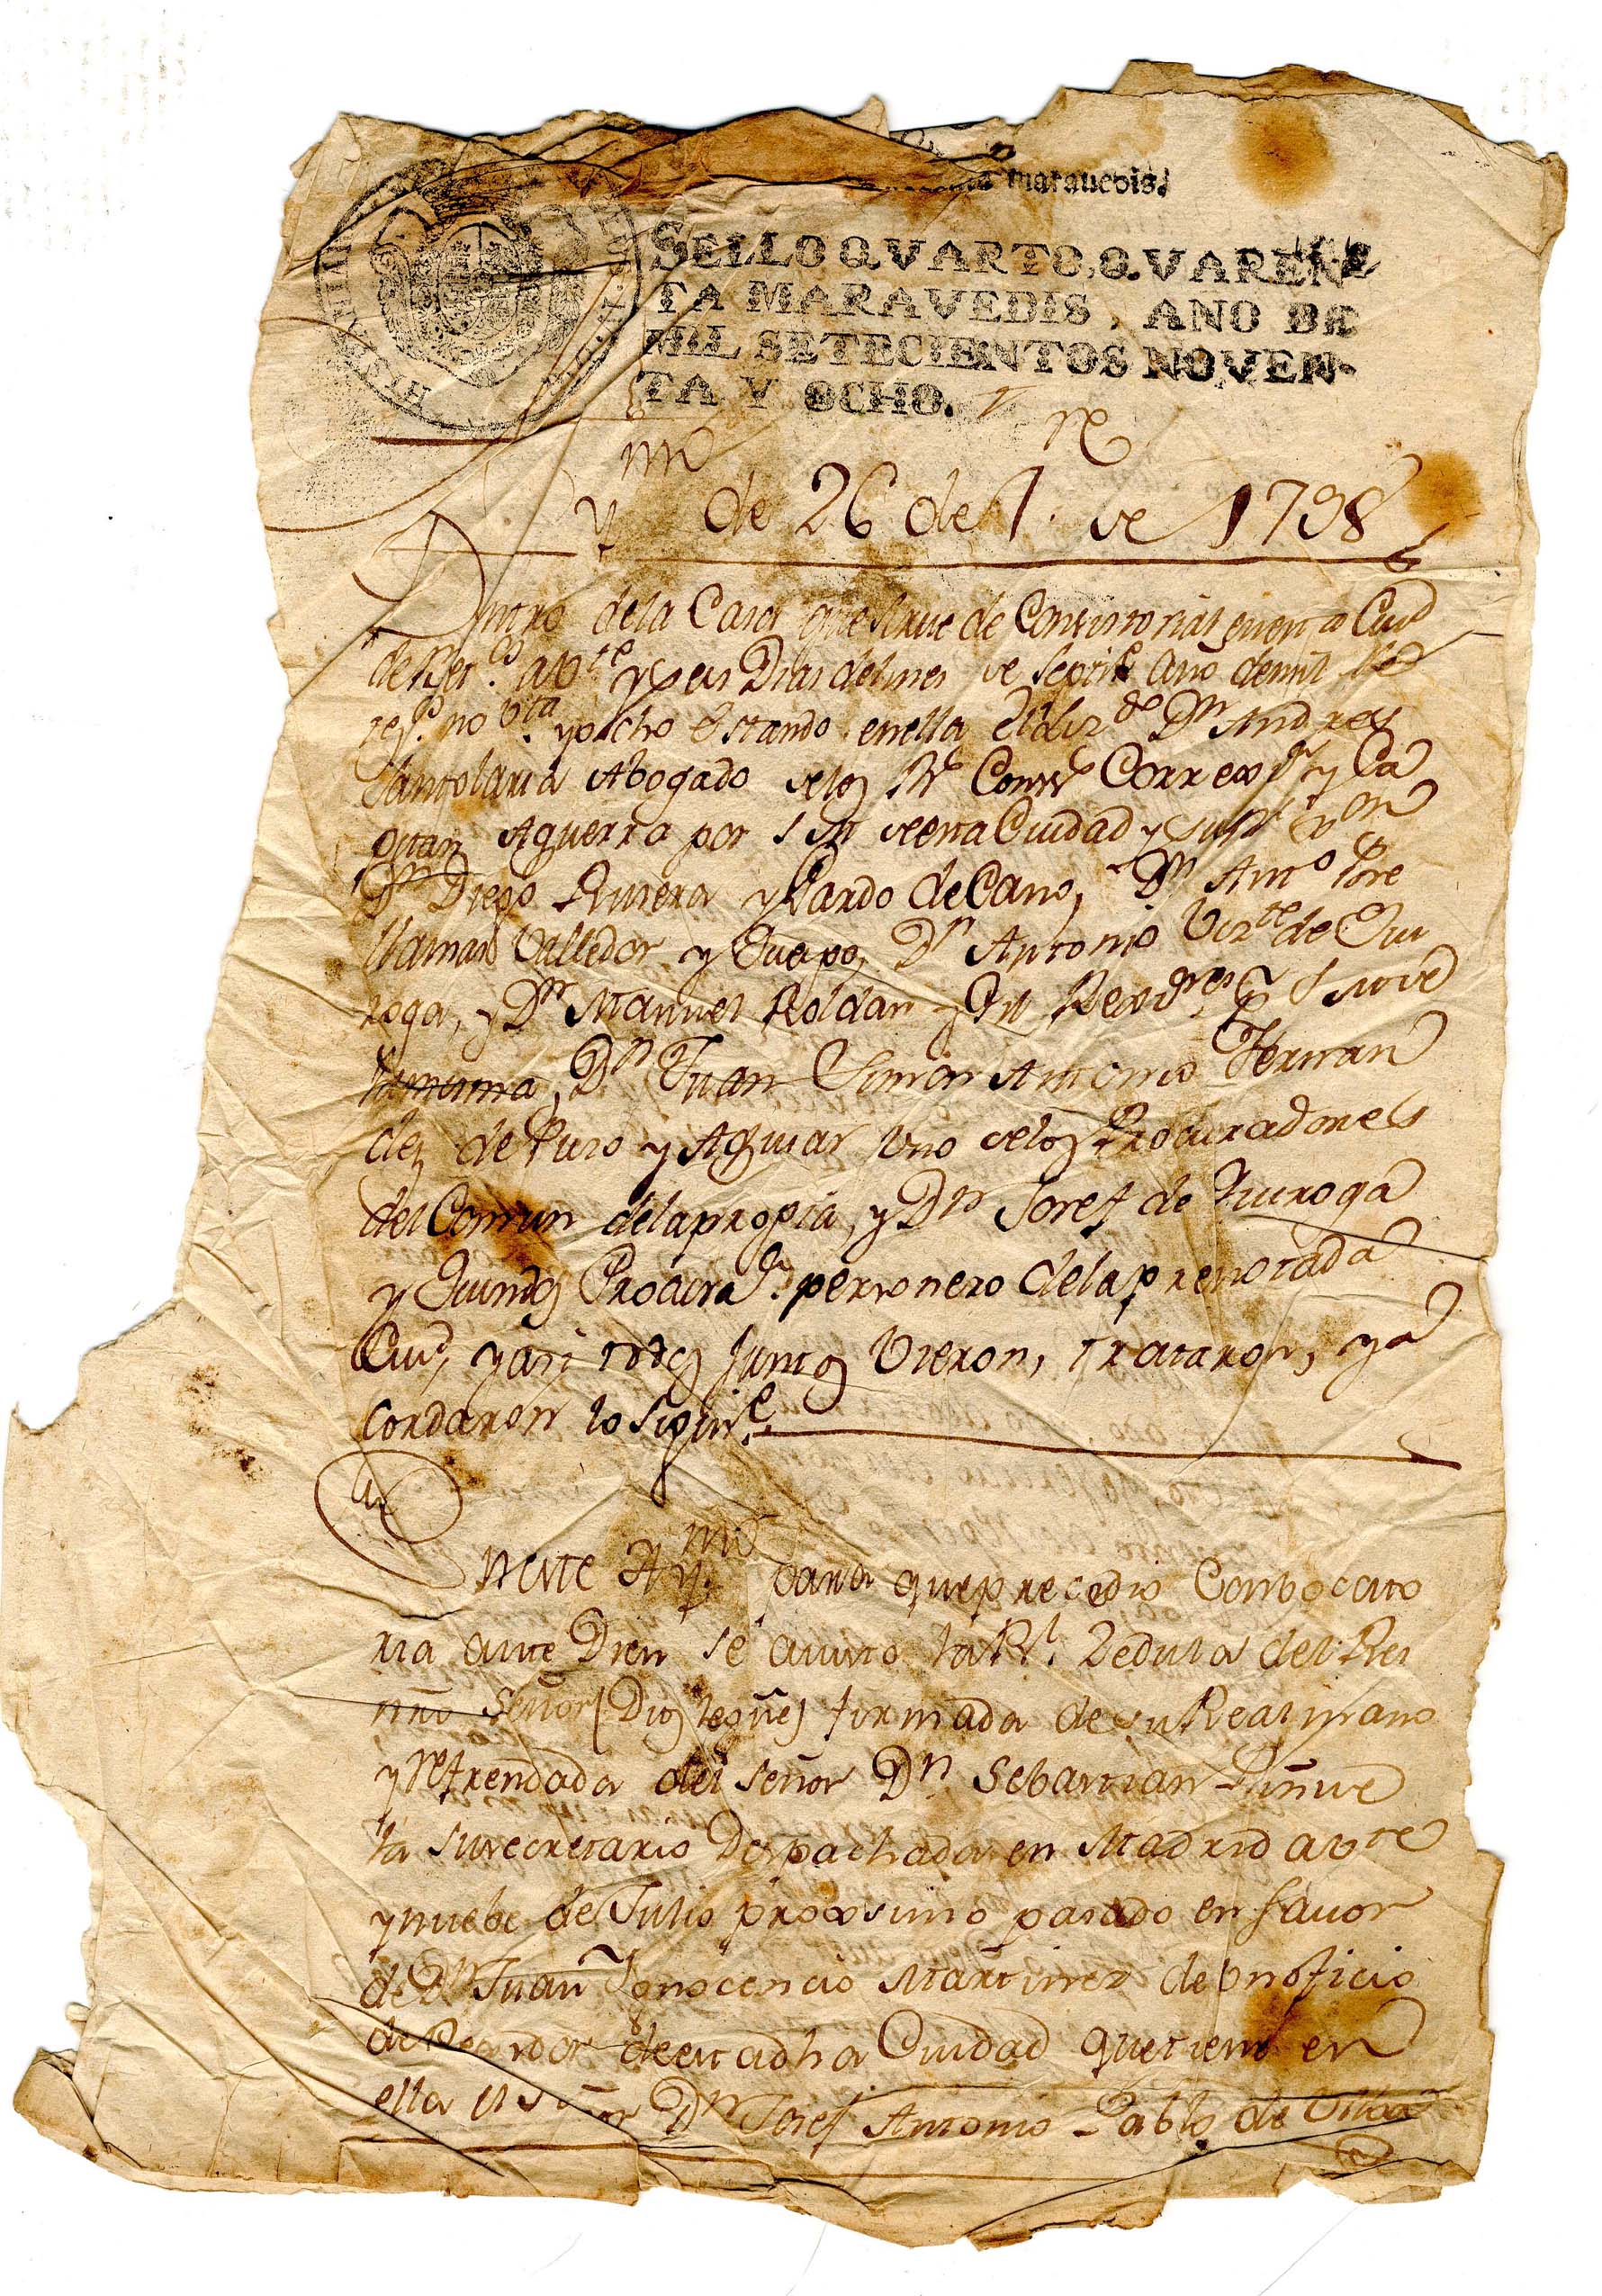 maravedis.
SELLO QVARTO, QVAREN
TA MARAVEDIS, ANO DE
MIL SETECIENTOS NOVEN-
TA Y OCHO.
Aymto de 26 de 7.re de 1798
Dentro de la Casa que sirve de Consistorial en esta Ciud
de Bet.os a Vte y seis Dias del mes de Septre año de mil
no Vta y ocho Estando en ella el Liz.do Dn Andres
Santolaria Abogado de los Rs Cons.s Correx.dr y Ca
pitan Aguerra por S M de esta Ciudad y su
Dn Diego Rivera y Pardo de Cano, Dn Anto Pore
Villamar Valledor y Quapo, Dn Antonio Vizte de Qui
roga, y Dn Manuel Roldan y Gil Rexidres
la misma, Dn Juan Simon Antonio Fernan
dez de Puzo y Aguiar Uno de los Procuradores
del Comun de la propia, y Dn Josef de Quiroga
y Quindos Procurar. personero de la prenotada
Ciud, y asi todos juntos Vieron, trataron, y a
cordaron lo siguite.
En este Aymto para que precedio Conbocato
ria ante Diem se avierto la Rl. Zedula del Rei
nro Señor (Dios le gue) firmada de su Real mano
y refrendada del señor Dn. Sebastian Piñue
la su secretario Despachada en Madrid a vte
y nuebe de Julio proximo pasado en favor
de Dn Juan Ynocencio Martinez de un oficio
de Rexidor de esta dha Ciudad que tiene en
ella el Señor Dn Josef Antonio Pablo de Ulloa